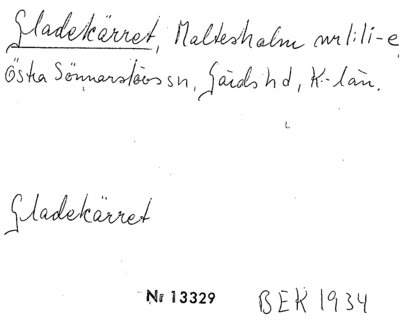 Gladekärret, Maltesholm nr 1:1-e
Östra Sönnarslövs sn, Gärds hd, K-län.
Gladekärret
Nr 13329 BEK 1934